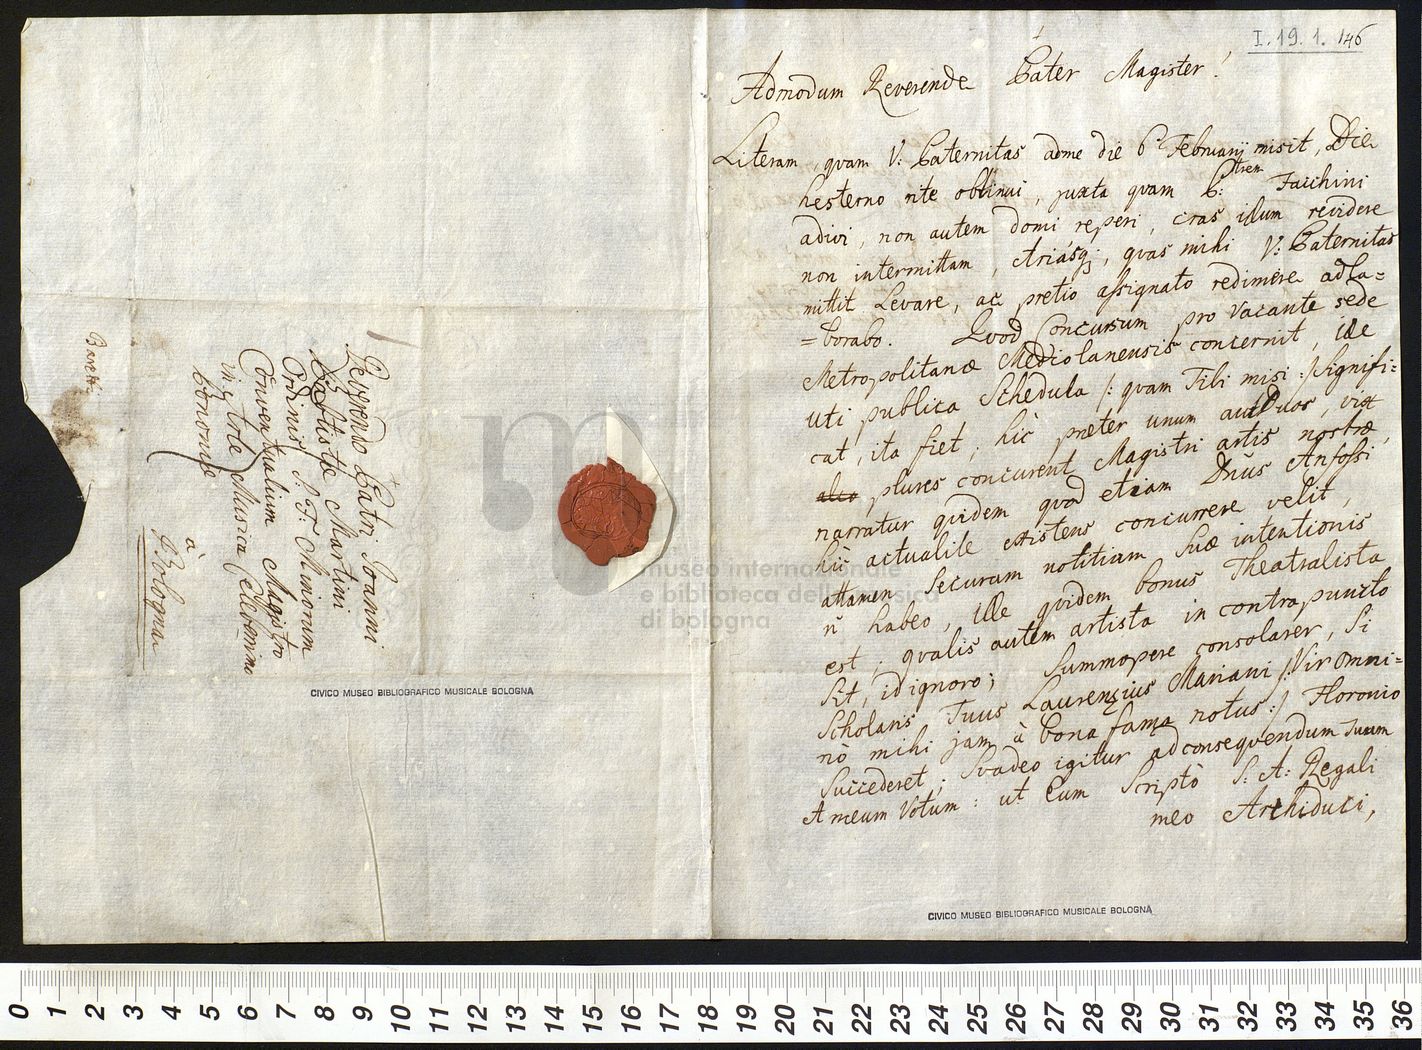 I. 19. 1. 146
Admodum Reverende Pater Magister!
Literam, quam V: Paternitas adme die 6ᵃ Februarij misit, Die
hesterno rite obtinui, juxta quam P: trem Facchini
adivi, non autem domi reperi, cras illum revidere
non intermittam, Ariasq;, quas mihi V: Paternitas
mittit Levare, ac pretio assignato redimere adla=
=borabo. Quod Concursum pro vacante sede
Metropolitanæ Mediolanensis concernit, ille
uti publica Schedula /: quam Tibi misi :/ signifi:
cat, ita fiet; hìc præter unum aut Duos, vix
plures concurent Magistri artis nostræ,
narratur quidem quod etiam Dn̄us Anfossi
hìc actualite existens concurrere velit,
attamen securam notitiam suæ intentionis
n̄ habeo, Ille quidem bonus Theatralista
est, qualis autem artista in contrapuncto
sit, id ignoro; summopere consolarer, si
Scholaris Tuus Laurenzius Mariani /: Vir omni=
nò mihi jam à bona fama notus :/ Floronio
Succederet; Svadeo igitur adconsequendum suum
et meum Votum: ut Eum scriptò S: A: Regali
meo Archiduci,
Reverendo Patri Joanni
Babtistæ Martini
Ordinis S. F. Minorum
Conventualium Magistro
in arte Musica Celebērimo
Bononiæ
à
Bologna
CIVICO MUSEO BIBLIOGRAFICO MUSICALE BOLOGNA
CIVICO MUSEO BIBLIOGRAFICO MUSICALE BOLOGNA
museo internazionale
e biblioteca della musica
di bologna
0 1 2 3 4 5 6 7 8 9 10 11 12 13 14 15 16 17 18 19 20 21 22 23 24 25 26 27 28 29 30 31 32 33 34 35 36